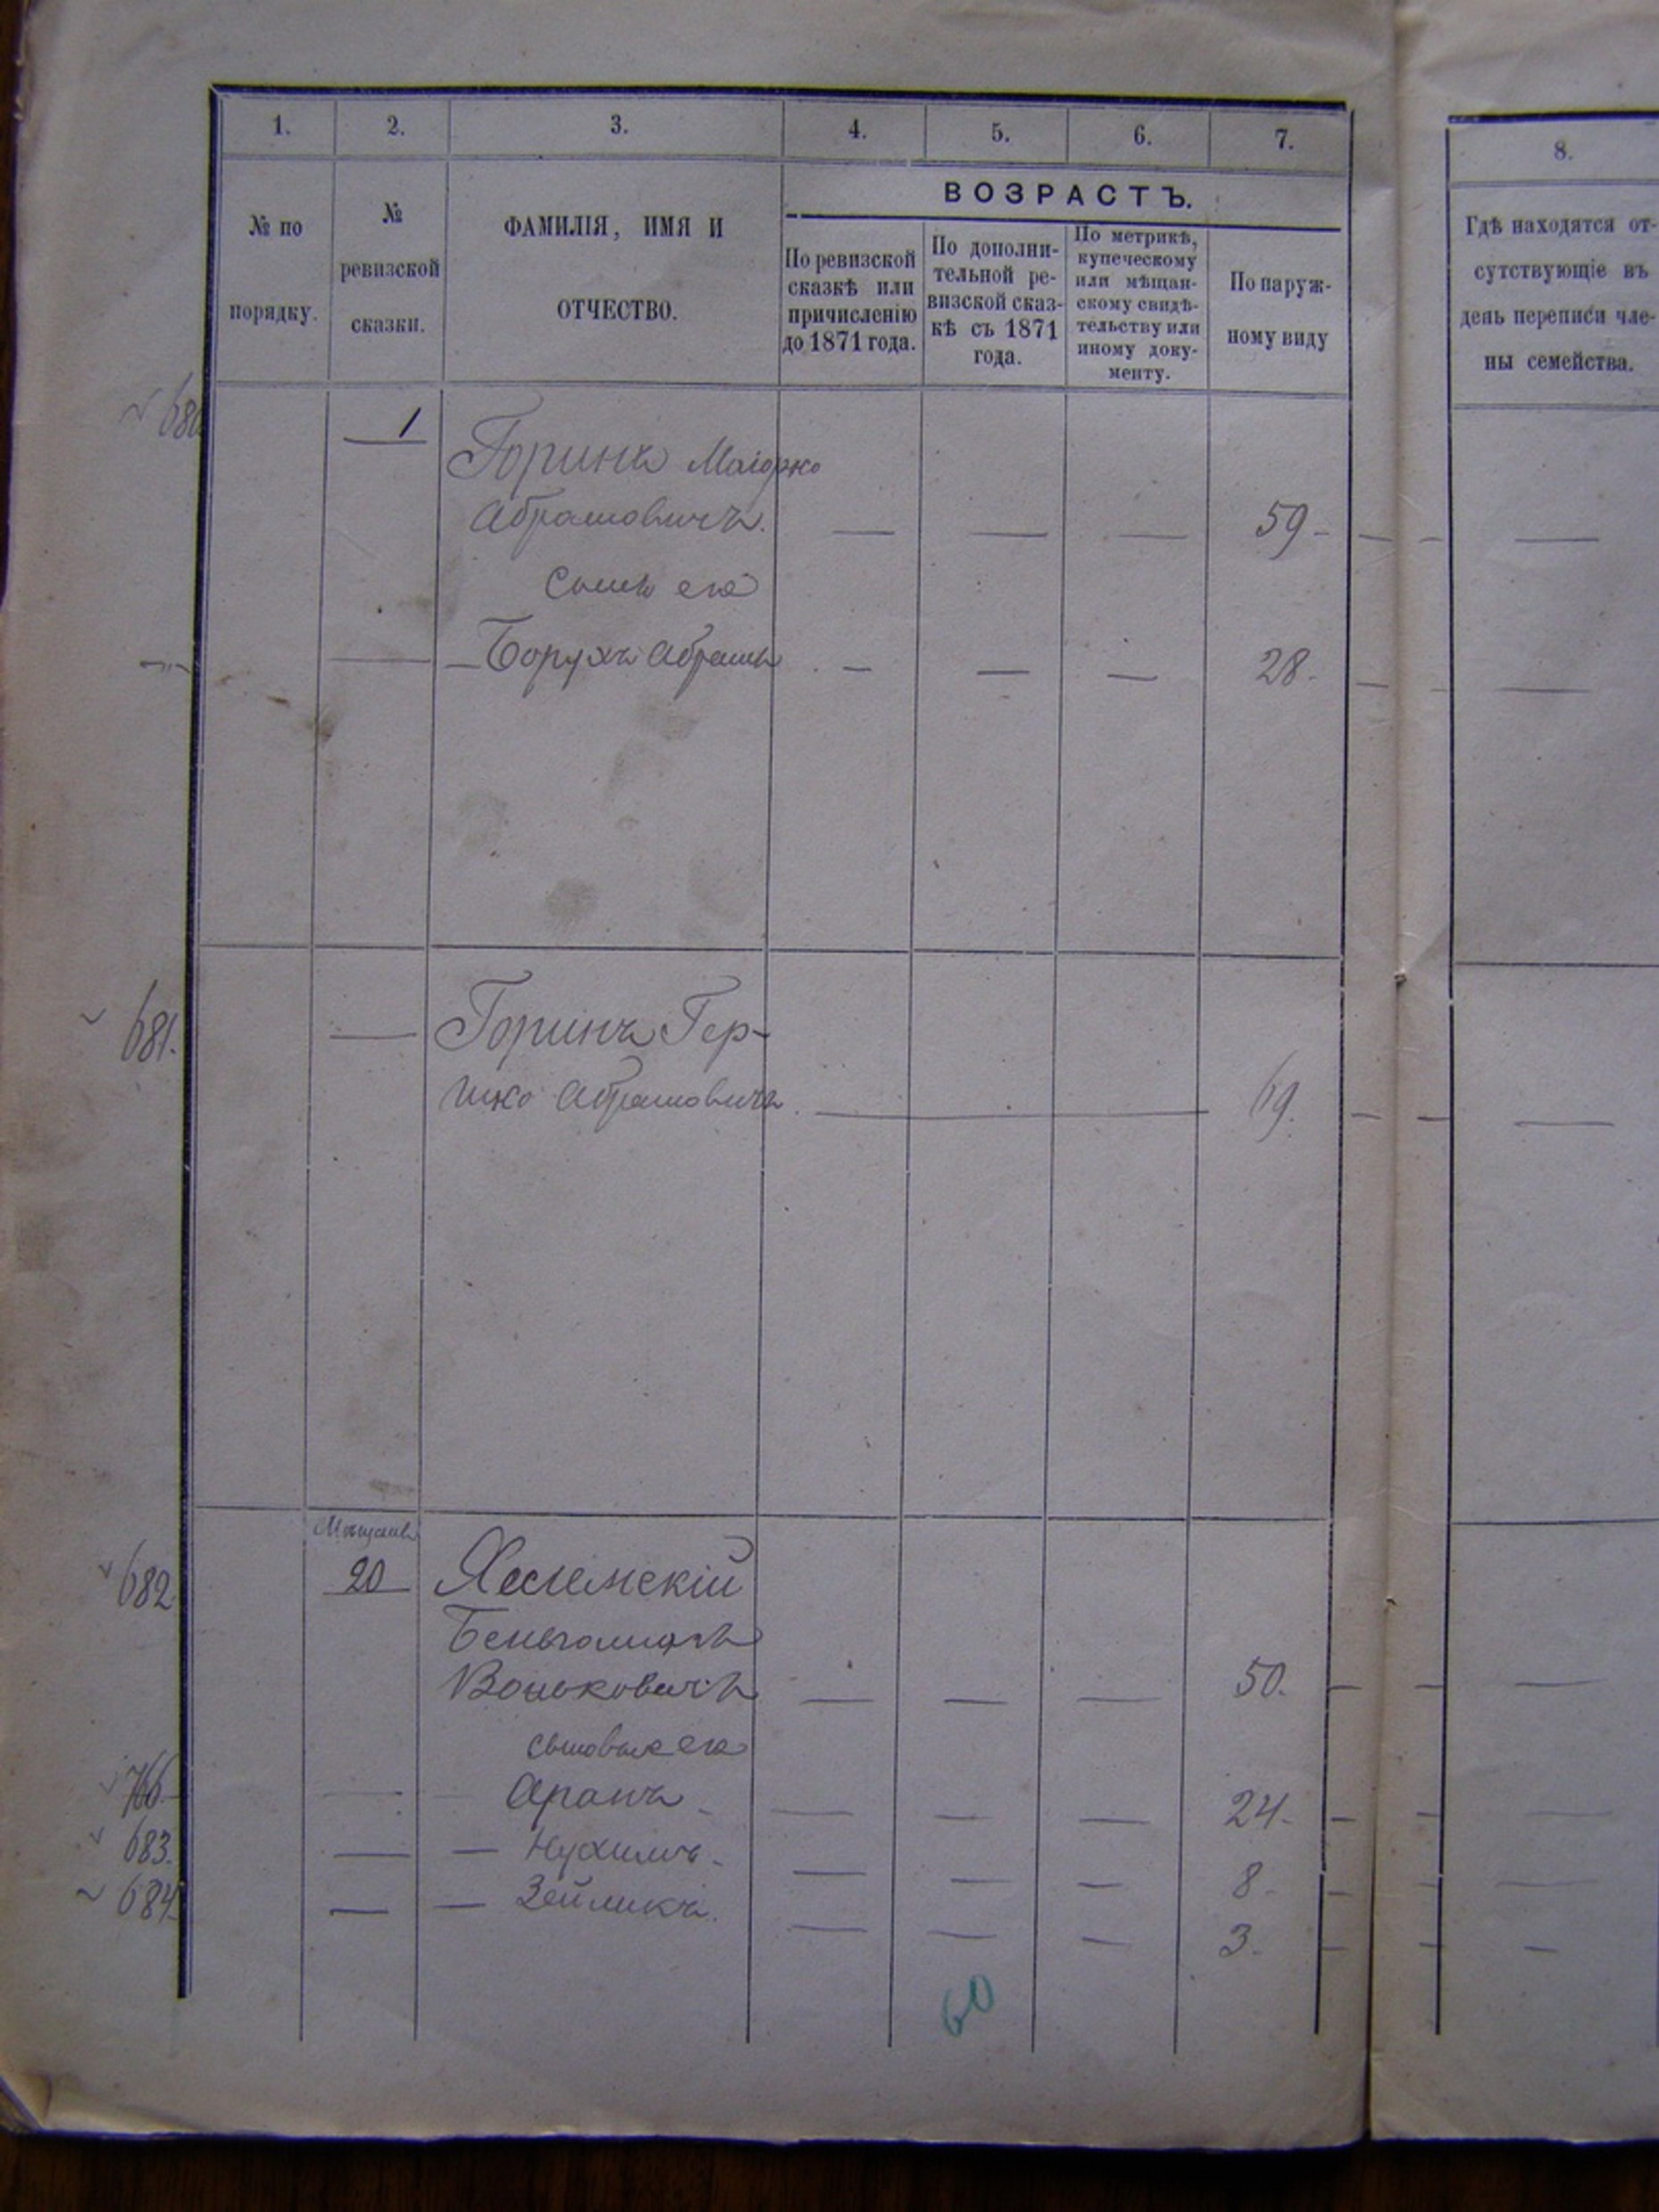 1. 2. 3. 4. 5. 6. 7. 8.
№ по порядку.
№ ревизской сказки.
ФАМИЛІЯ, ИМЯ И ОТЧЕСТВО.
ВОЗРАСТЪ.
По ревизской
сказкѣ или
причисленію
до 1871 года.
По дополни-
тельной ре-
визской сказ-
кѣ съ 1871
года.
По метрикѣ,
купеческому
или мѣщан-
скому свидѣ-
тельству или
иному доку-
менту.
По наруж-
ному виду
Гдѣ находятся от-
сутствующіе въ
день переписи чле-
ны семейства.
680 1 Горинъ
Абрамовичъ. — — — 59 — — — —
Сынъ его
— — Борухъ Абрамъ — — — 28. — — —
681. — Горинъ Гер-
шко Абрамовичъ. — 69. — — —
682 20
50. — — —
сыновья его
766 — Аранъ — — — — 24. — — —
683. — — Нухимъ — — — — 8 — — —
684 — — Зейликъ. — — — 3. — — —
60